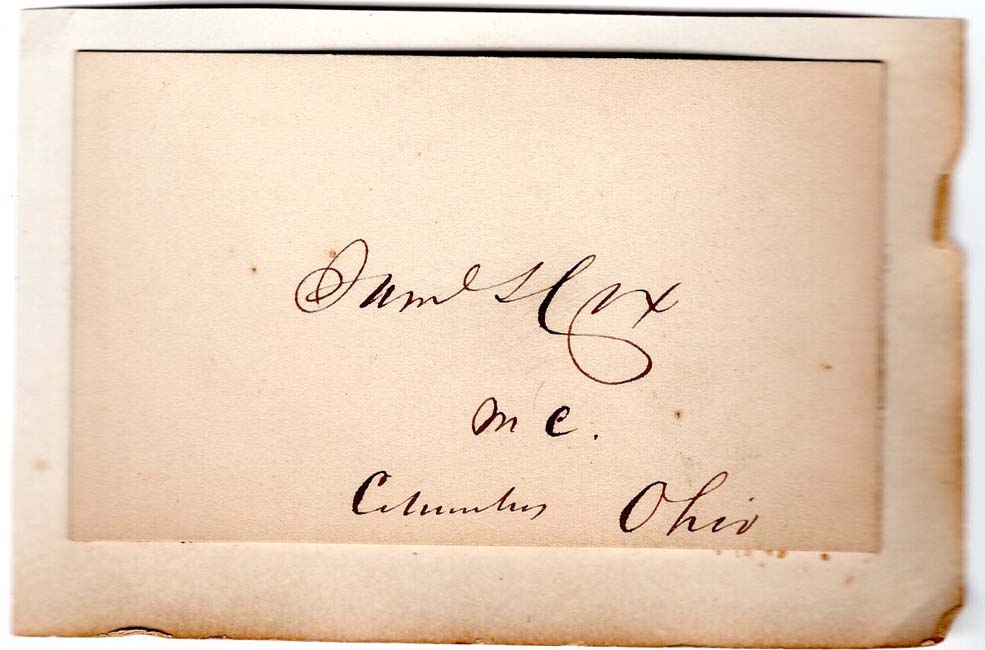 Saml S Cox
M C.
Columbus Ohio